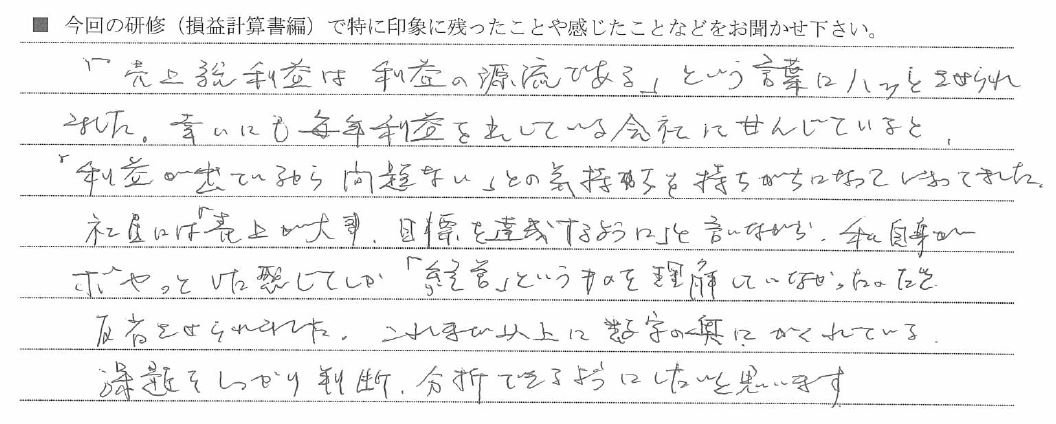 ■ 今回の研修（損益計算書編）で特に印象に残ったことや感じたことなどをお聞かせ下さい。
「売上総利益は利益の源流である」という言葉にハッとさせられ
ました。幸いにも毎年利益を出している会社に甘んじていると、
「利益が出ているから問題ない」との気持ちを持ちがちになってしまってました。
社員には「売上が大事、目標を達成するように」と言いながら、私自身が
ボヤっとした感じでしか「経営」というものを理解していなかったのだと
反省させられました。これまで以上に数字の奥にかくれている
課題をしっかり判断、分析できるようにしたいと思います